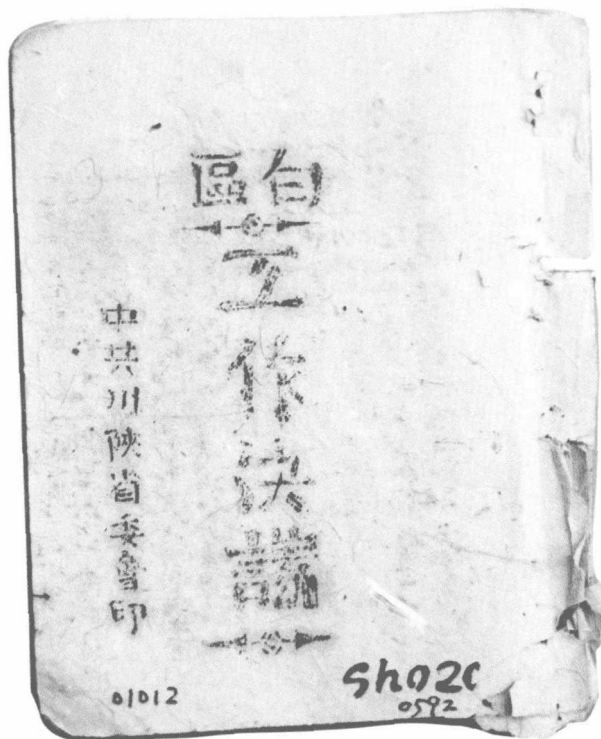 白區
工作決議
中共川陝省委會印
01012
Sh020
0592